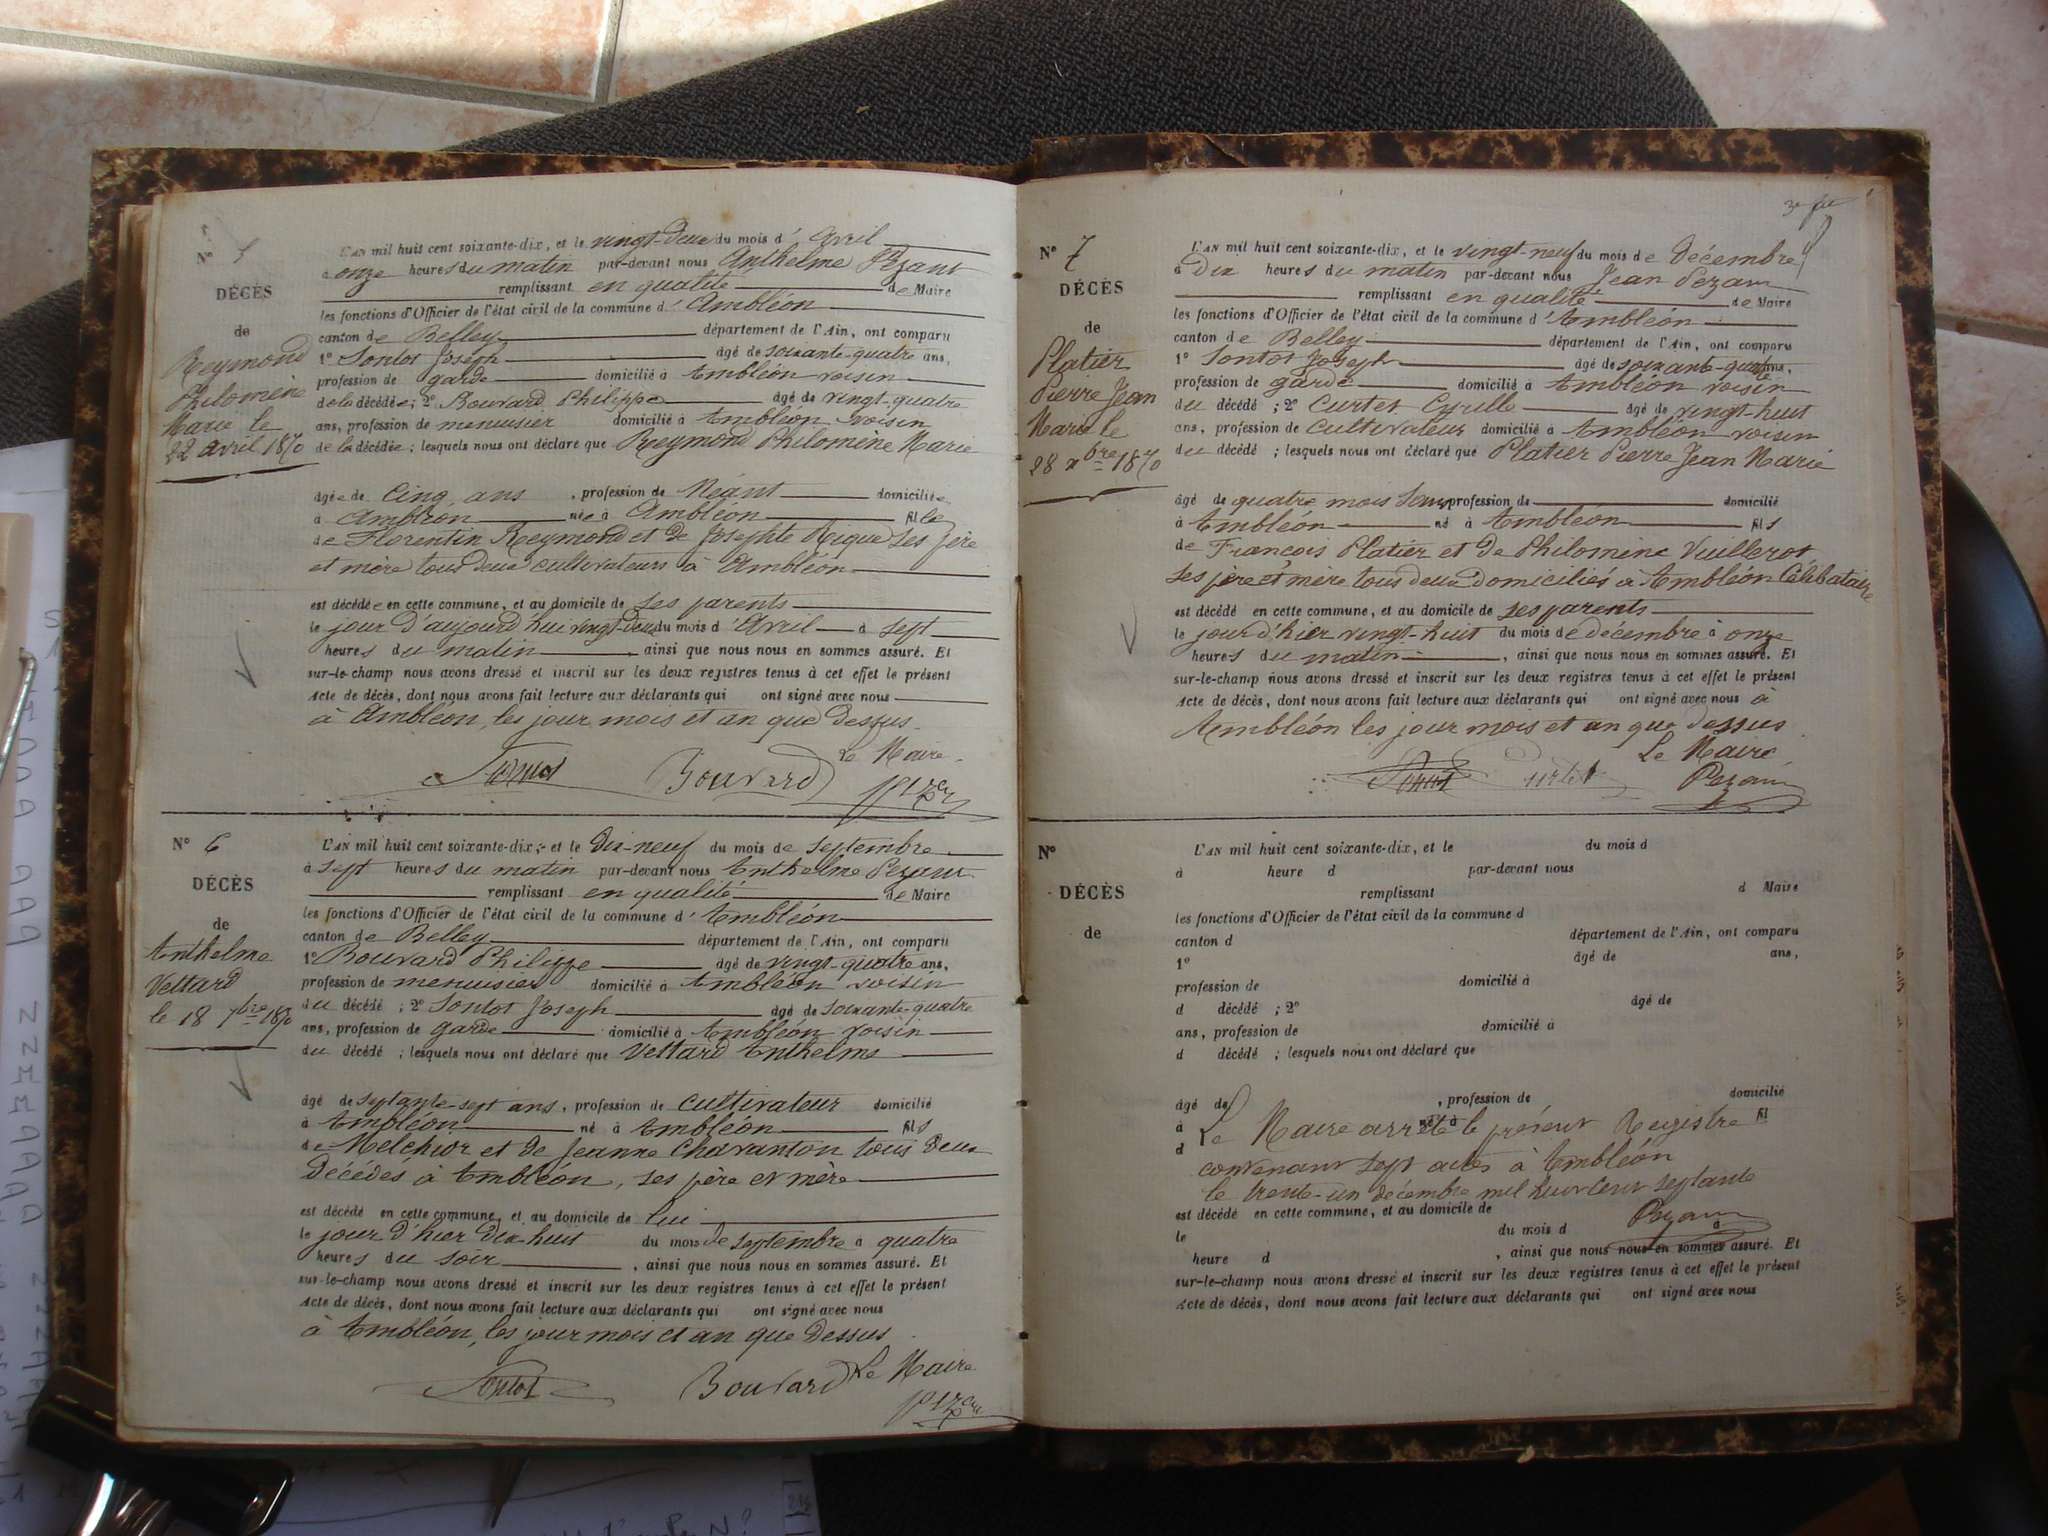 N° 5
DÉCÈS
de
Reymond
Philomène
Marie le
22 avril 1870
L'AN mil huit cent soixante-dix, et le vingt-deux du mois d'Avril
à onze heures du matin par-devant nous Anthelme Pezant
remplissant en qualité de Maire
les fonctions d'Officier de l'état civil de la commune d'Ambléon
canton de Belley département de l'Ain, ont comparu
1° Sontot Joseph âgé de soixante-quatre ans,
profession de garde domicilié à Ambléon voisin
de la décédée; 2° Bouvard Philippe âgé de vingt-quatre
ans, profession de menuisier domicilié à Ambléon voisin
de la décédée; lesquels nous ont déclaré que Reymond Philomène Marie
âgée de Cinq ans, profession de Néant domiciliée
à Ambléon née à Ambléon fille
de Florentin Reymond et de Josephte Rique ses père
et mère tous deux cultivateurs à Ambléon
est décédée en cette commune, et au domicile de ses parents
le jour d'aujourd'hui vingt-deux du mois d'Avril à sept
heures du matin, ainsi que nous nous en sommes assuré. Et
sur-le-champ nous avons dressé et inscrit sur les deux registres tenus à cet effet le présent
Acte de décès, dont nous avons fait lecture aux déclarants qui ont signé avec nous
à Ambléon, les jour mois et an que dessus.
Le Maire
Sontot Bouvard
N° 6
DÉCÈS
de
Anthelme
Vettard
le 18 7bre 1870
L'AN mil huit cent soixante-dix, et le dix-neuf du mois de septembre
à sept heures du matin par-devant nous Anthelme Pezant
remplissant en qualité de Maire
les fonctions d'Officier de l'état civil de la commune d'Ambléon
canton de Belley département de l'Ain, ont comparu
1° Bouvard Philippe âgé de vingt-quatre ans,
profession de menuisier domicilié à Ambléon voisin
du décédé; 2° Sontot Joseph âgé de soixante-quatre
ans, profession de garde domicilié à Ambléon voisin
du décédé; lesquels nous ont déclaré que Vettard Anthelme
âgé de septante-sept ans, profession de cultivateur domicilié
à Ambléon né à Ambléon fils
de Melchior et de Jeanne Charanton tous deux
décédés à Ambléon, ses père et mère
est décédé en cette commune, et au domicile de lui
le jour d'hier dix-huit du mois de septembre à quatre
heures du soir, ainsi que nous nous en sommes assuré. Et
sur-le-champ nous avons dressé et inscrit sur les deux registres tenus à cet effet le présent
Acte de décès, dont nous avons fait lecture aux déclarants qui ont signé avec nous
à Ambléon, les jour mois et an que dessus
Le Maire
Sontot Bouvard
N° 7
DÉCÈS
de
Platier
Pierre Jean
Marie le
28 xbre 1870
L'AN mil huit cent soixante-dix, et le vingt-neuf du mois de Décembre
à dix heures du matin par-devant nous Jean Pezant
remplissant en qualité de Maire
les fonctions d'Officier de l'état civil de la commune d'Ambléon
canton de Belley département de l'Ain, ont comparu
1° Sontot Joseph âgé de soixante-quatre ans,
profession de garde domicilié à Ambléon voisin
du décédé; 2° Curtet Cyrille âgé de vingt-huit
ans, profession de cultivateur domicilié à Ambléon voisin
du décédé; lesquels nous ont déclaré que Platier Pierre Jean Marie
âgé de quatre mois sans profession de domicilié
à Ambléon né à Ambléon fils
de François Platier et de Philomène Vuillerot
ses père et mère tous deux domiciliés à Ambléon Célibataire
est décédé en cette commune, et au domicile de ses parents
le jour d'hier vingt-huit du mois de décembre à onze
heures du matin, ainsi que nous nous en sommes assuré. Et
sur-le-champ nous avons dressé et inscrit sur les deux registres tenus à cet effet le présent
Acte de décès, dont nous avons fait lecture aux déclarants qui ont signé avec nous à
Ambléon les jour mois et an que dessus
Le Maire
Sontot Curtet Pezant
N°
DÉCÈS
de
L'AN mil huit cent soixante-dix, et le du mois d
à heure d par-devant nous
remplissant d Maire
les fonctions d'Officier de l'état civil de la commune d
canton d département de l'Ain, ont comparu
1° âgé de ans,
profession de domicilié à
d décédé ; 2° âgé de
ans, profession de domicilié à
d décédé ; lesquels nous ont déclaré que
âgé de , profession de domicilié
à né à fil
d
Le Maire arrête le présent Registre
contenant sept actes à Ambléon
le trente-un décembre mil huit cent septante
Pezant
est décédé en cette commune, et au domicile de
le du mois d à
heure d , ainsi que nous nous en sommes assuré. Et
sur-le-champ nous avons dressé et inscrit sur les deux registres tenus à cet effet le présent
Acte de décès, dont nous avons fait lecture aux déclarants qui ont signé avec nous